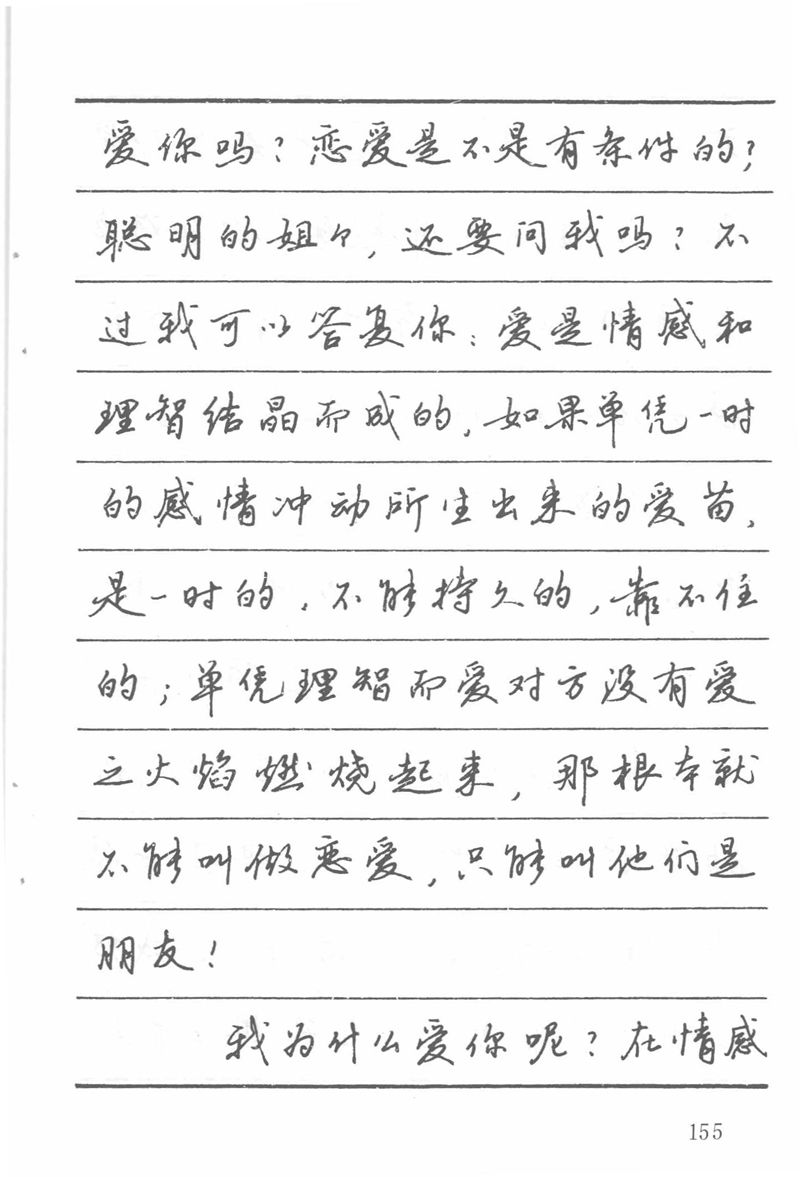 爱你吗？恋爱是不是有条件的？
聪明的姐々，还要问我吗？不
过我可以答复你：爱是情感和
理智结晶而成的，如果单凭一时
的感情冲动所生出来的爱苗，
是一时的，不能持久的，靠不住
的；单凭理智而爱对方没有爱
之火焰燃烧起来，那根本就
不能叫做恋爱，只能叫他们是
朋友！
我为什么爱你呢？在情感
155